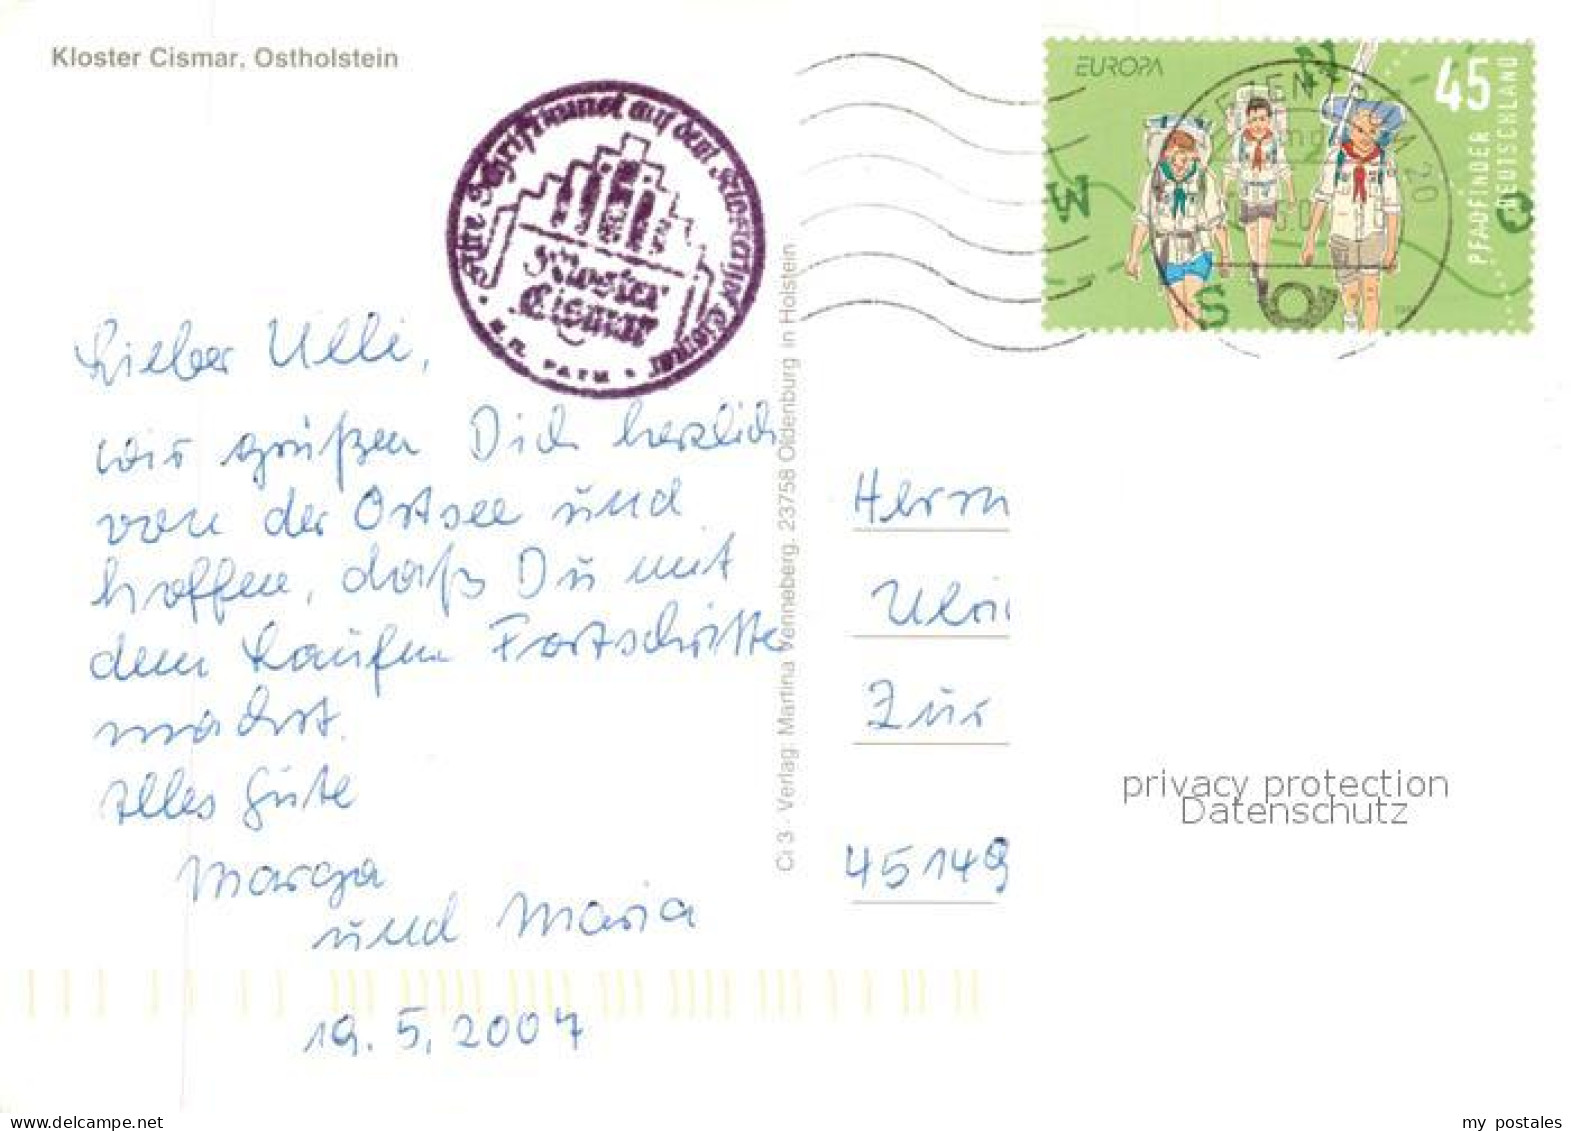 Kloster Cismar, Ostholstein
Alte Schriftkunst auf dem Klosterhof Cismar
Kloster
Cismar
EUROPA
45
PFADFINDER
DEUTSCHLAND
N
W
O
S
20
Lieber Ulli,
wir grüßen Dich herzlich
von der Ostsee und
hoffen, daß Du mit
dem Laufen Fortschritte
machst.
Alles Gute
Marga
und Maria
19.5.2007
Ci 3 - Verlag: Martina Venneberg, 23758 Oldenburg in Holstein
Herrn
Ulri
Zur
45149
privacy protection
Datenschutz
my postales